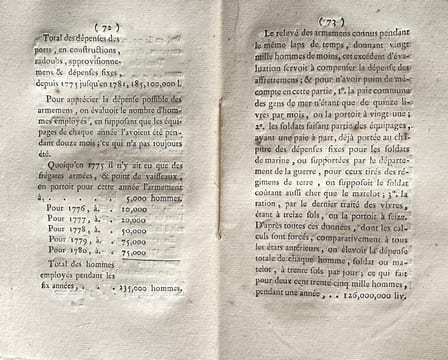 ( 72 )
Total des dépenses des
ports, en constructions,
radoubs, approvisionne-
mens & dépenses fixes,
depuis 1775 jusqu'en 1781, 185,100,000 l.
Pour apprécier la dépense possible des
armemens, on évaluoit le nombre d'hom-
mes employés, en supposant que les équi-
pages de chaque année l'avoient été pen-
dant douze mois; ce qui n'a pas toujours
été.
Quoiqu'en 1775 il n'y ait eu que des
frégates armées, & point de vaisseaux,
on portoit pour cette année l'armement
à, . . . . 5,000 hommes.
Pour 1776, à. . 10,000
Pour 1777, à. . 20,000
Pour 1778, à. . 50,000
Pour 1779, à. . 75,000
Pour 1780, à. . 75,000
Total des hommes
employés pendant les
six années, . . . 235,000 hommes.
( 73 )
Le relevé des armemens connus pendant
le même laps de temps, donnant vingt
mille hommes de moins, cet excédent d'éva-
luation servoit à compenser la dépense des
affrettemens; & pour n'avoir point de mé-
compte en cette partie, 1°. la paie commune
des gens de mer n'étant que de quinze li-
vres par mois, on la portoit à vingt-une;
2°. les soldats faisant partie des équipages,
ayant une paie à part, déjà portée au cha-
pitre des dépenses fixes pour les soldats
de marine, ou supportées par le départe-
ment de la guerre, pour ceux tirés des ré-
gimens de terre, on supposoit le soldat
coûtant aussi cher que le matelot; 3°. la
ration, par le dernier traité des vivres,
étant à treize sols, on la portoit à seize.
D'après toutes ces données, dont les cal-
culs sont forcés, comparativement à tous
les états antérieurs, on élevoit la dépense
totale de chaque homme, soldat ou ma-
telot, à trente sols par jour; ce qui fait
pour deux cent trente cinq mille hommes,
pendant une année, . . 126,000,000 liv.